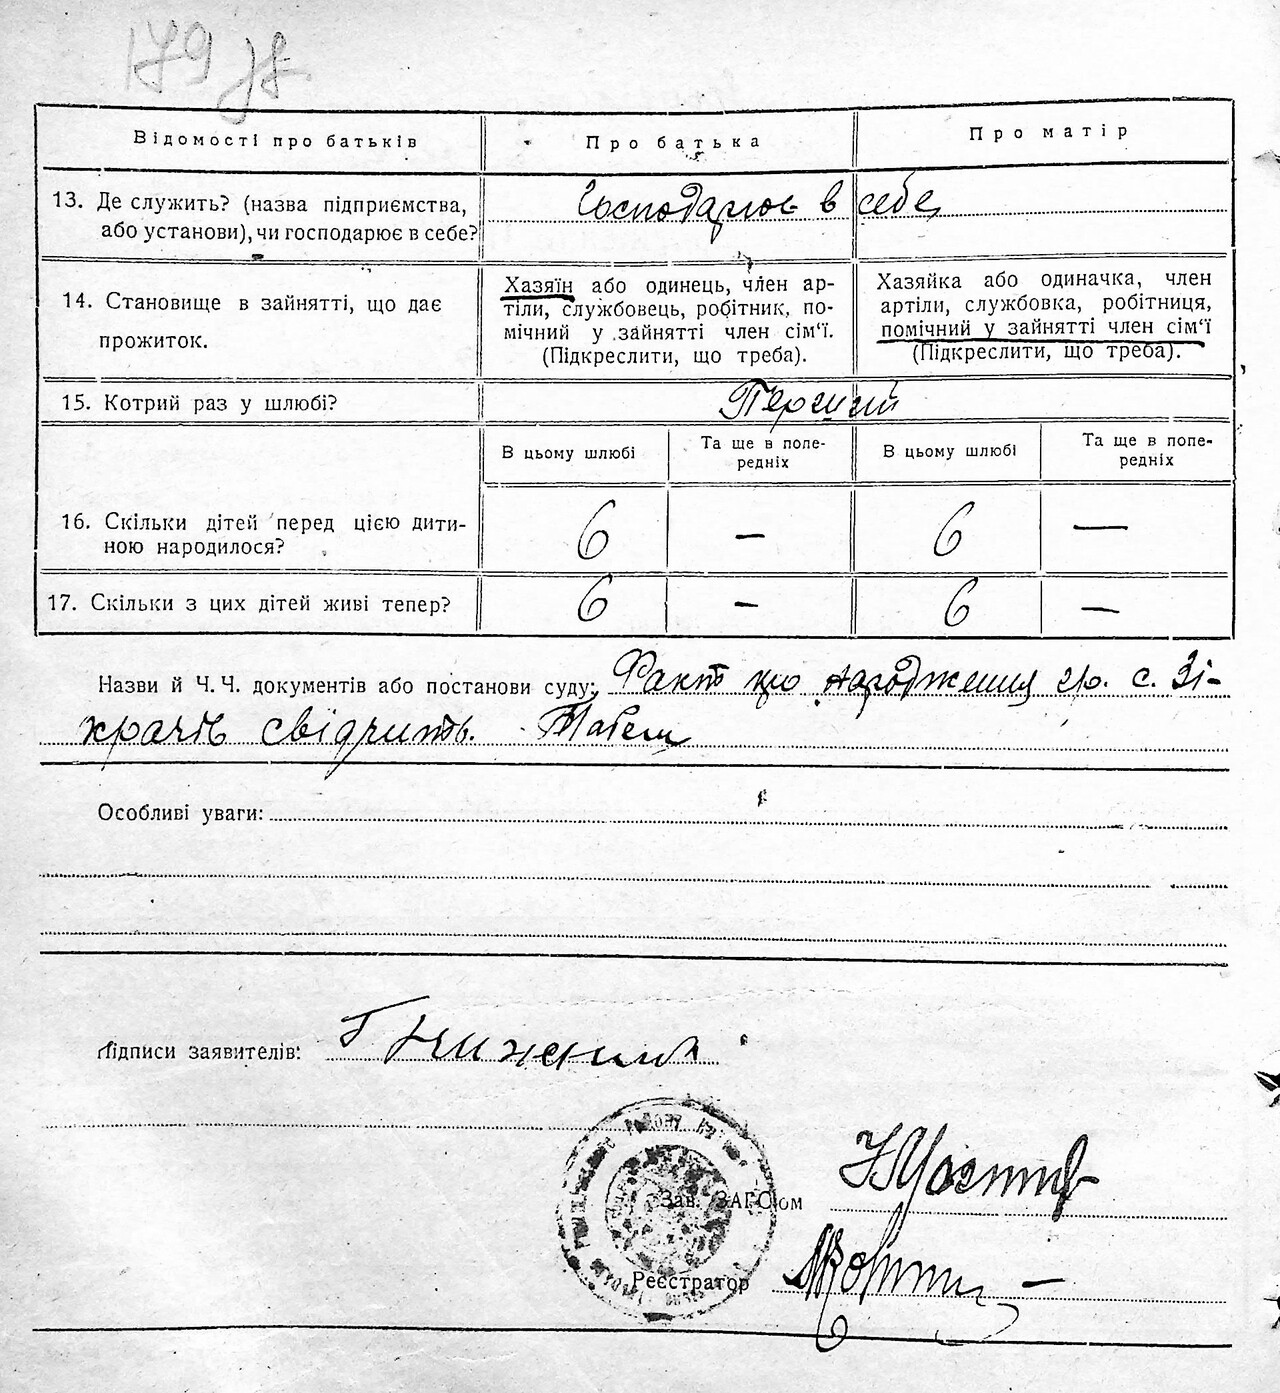 179 зв.
Відомості про батьків
Про батька
Про матір
13. Де служить? (назва підприємства,
або установи), чи господарює в себе?
Господарює в себе
14. Становище в зайнятті, що дає
прожиток.
Хазяїн або одинець, член ар-
тіли, службовець, робітник, по-
мічний у зайнятті член сім'ї.
(Підкреслити, що треба).
Хазяйка або одиначка, член
артіли, службовка, робітниця,
помічний у зайнятті член сім'ї
(Підкреслити, що треба).
15. Котрий раз у шлюбі?
Перший
В цьому шлюбі
Та ще в попе-
редніх
В цьому шлюбі
Та ще в попе-
редніх
16. Скільки дітей перед цією дити-
ною народилося?
6 — 6 —
17. Скільки з цих дітей живі тепер?
6 — 6 —
Назви й Ч. Ч. документів або постанови суду: Факт цю народження гр. с. Зі-
крачів свідчить.
Особливі уваги:
Підписи заявителів:
Зав. ЗАГС'ом
Реєстратор